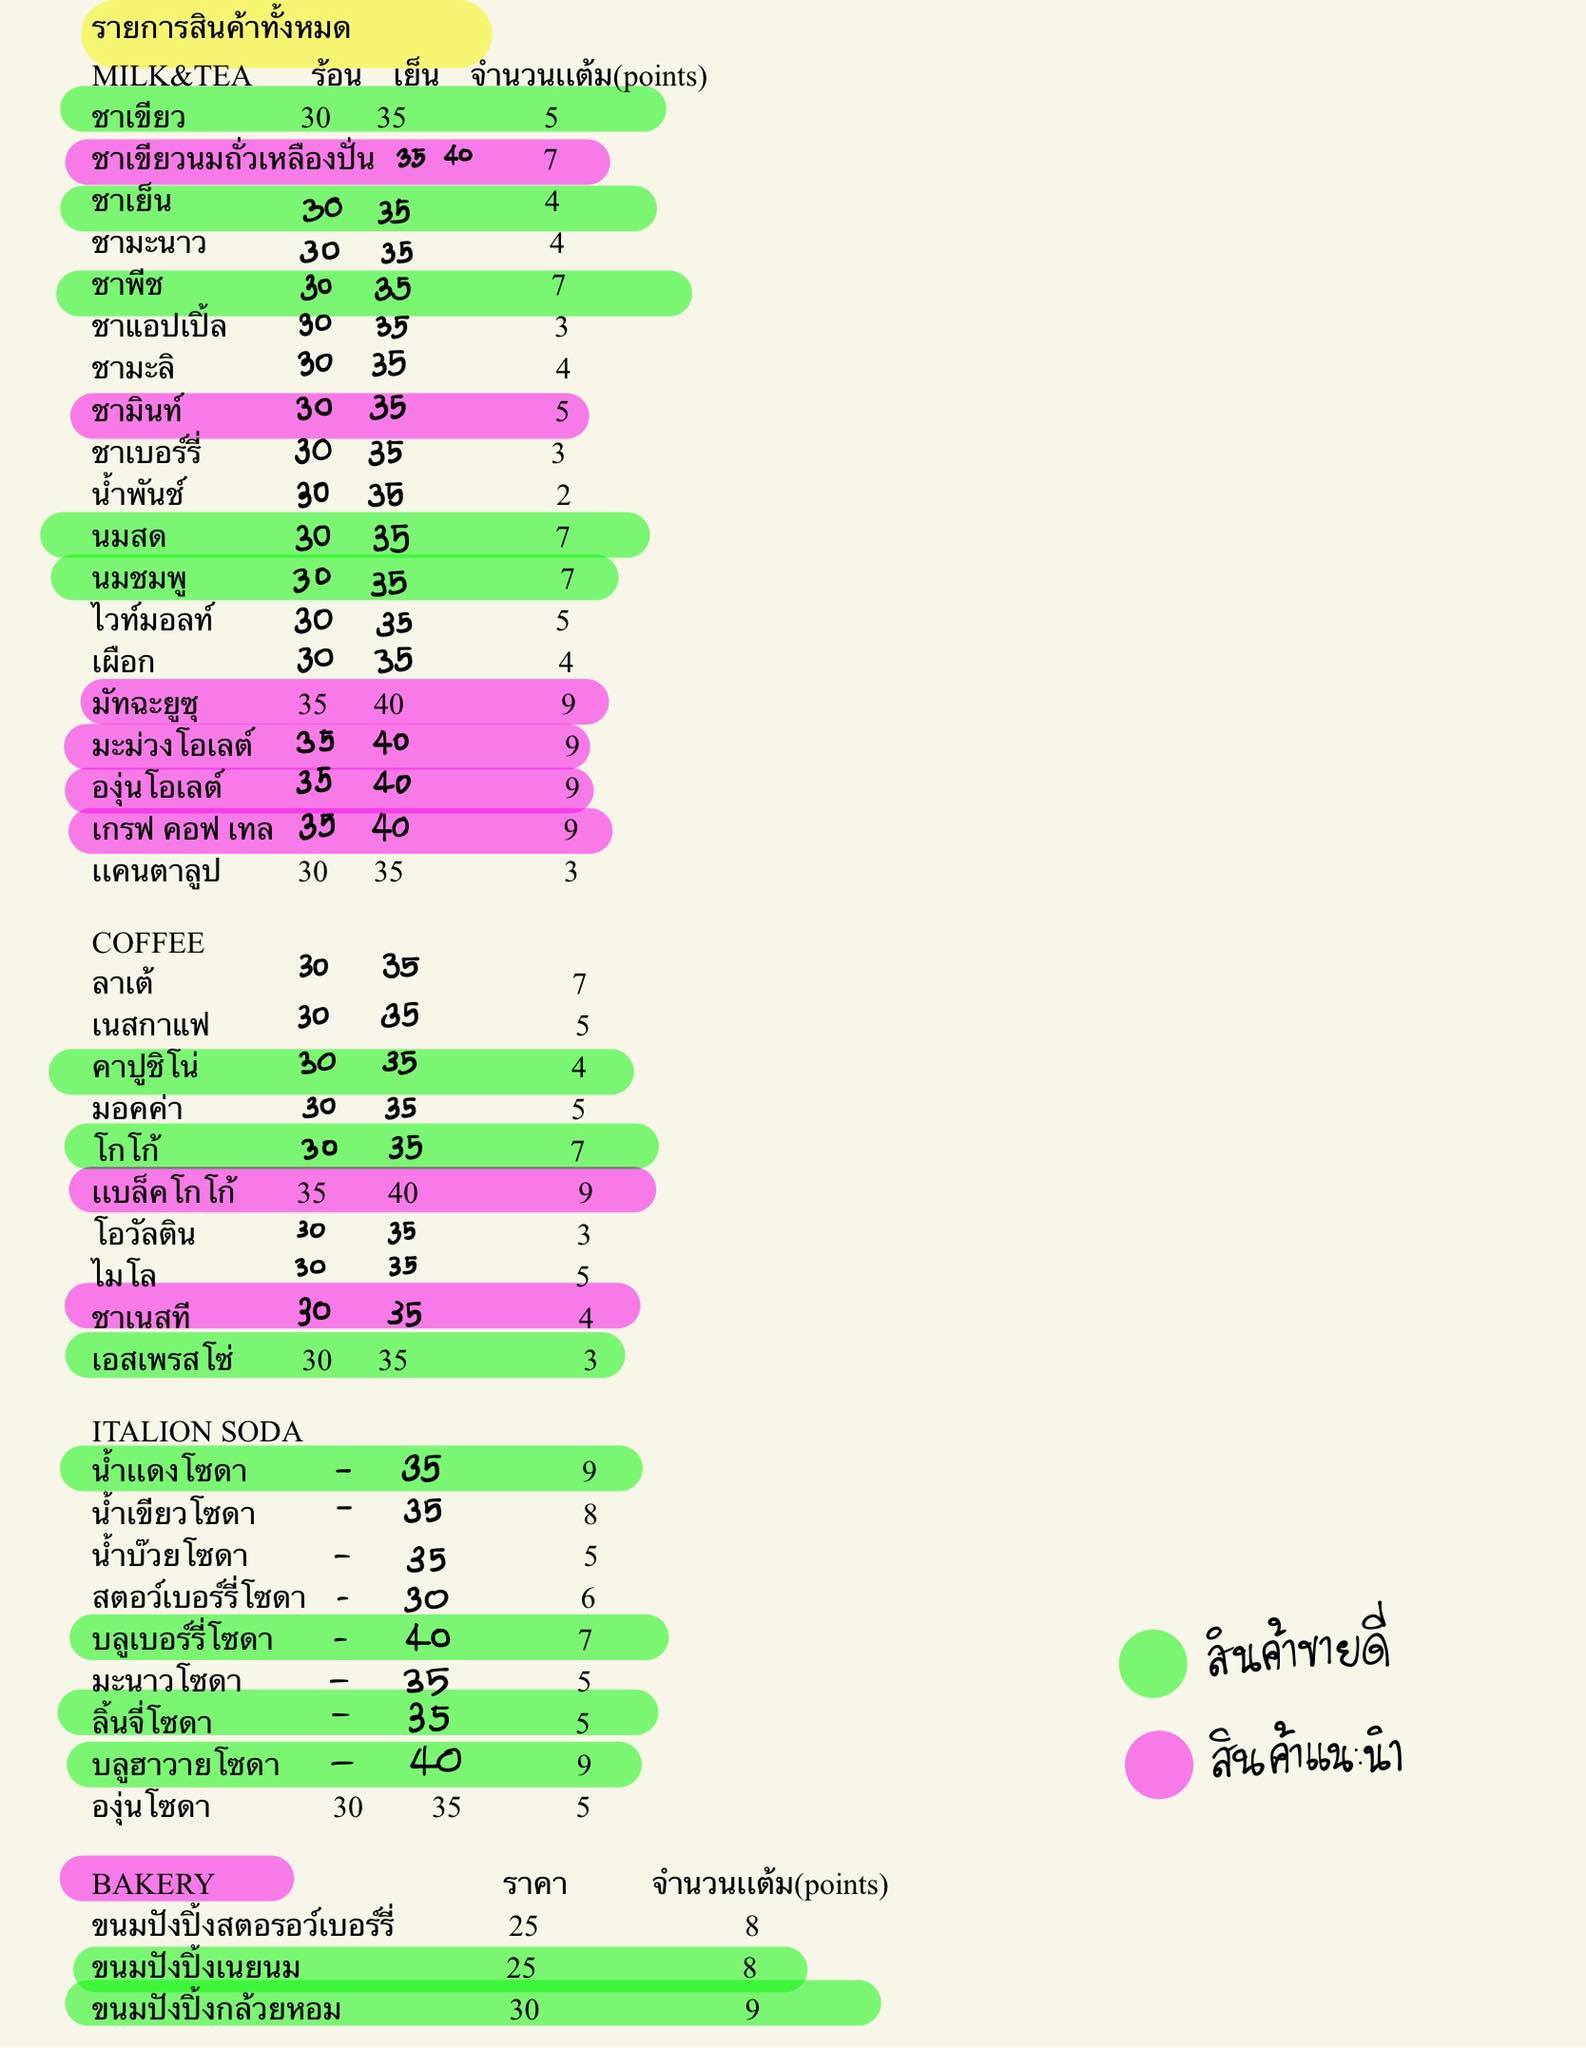 รายการสินค้าทั้งหมด
MILK&TEA ร้อน เย็น จำนวนแต้ม(points)
ชาเขียว 30 35 5
ชาเขียวนมถั่วเหลืองปั่น 35 40 7
ชาเย็น 30 35 4
ชามะนาว 30 35 4
ชาพีช 30 35 7
ชาแอปเปิ้ล 30 35 3
ชามะลิ 30 35 4
ชามินท์ 30 35 5
ชาเบอร์รี่ 30 35 3
น้ำพันช์ 30 35 2
นมสด 30 35 7
นมชมพู 30 35 7
ไวท์มอลท์ 30 35 5
เผือก 30 35 4
มัทฉะยูซุ 35 40 9
มะม่วงโอเลต์ 35 40 9
องุ่นโอเลต์ 35 40 9
เกรฟ คอฟ เทล 35 40 9
แคนตาลูป 30 35 3
COFFEE
ลาเต้ 30 35 7
เนสกาแฟ 30 35 5
คาปูชิโน่ 30 35 4
มอคค่า 30 35 5
โกโก้ 30 35 7
แบล็คโกโก้ 35 40 9
โอวัลติน 30 35 3
ไมโล 30 35 5
ชาเนสที 30 35 4
เอสเพรสโซ่ 30 35 3
ITALION SODA
น้ำแดงโซดา - 35 9
น้ำเขียวโซดา - 35 8
น้ำบ๊วยโซดา - 35 5
สตอว์เบอร์รี่โซดา - 30 6
บลูเบอร์รี่โซดา - 40 7
มะนาวโซดา - 35 5
ลิ้นจี่โซดา - 35 5
บลูฮาวายโซดา - 40 9
องุ่นโซดา 30 35 5
สินค้าขายดี
สินค้าแนะนำ
BAKERY ราคา จำนวนแต้ม(points)
ขนมปังปิ้งสตอรอว์เบอร์รี่ 25 8
ขนมปังปิ้งเนยนม 25 8
ขนมปังปิ้งกล้วยหอม 30 9